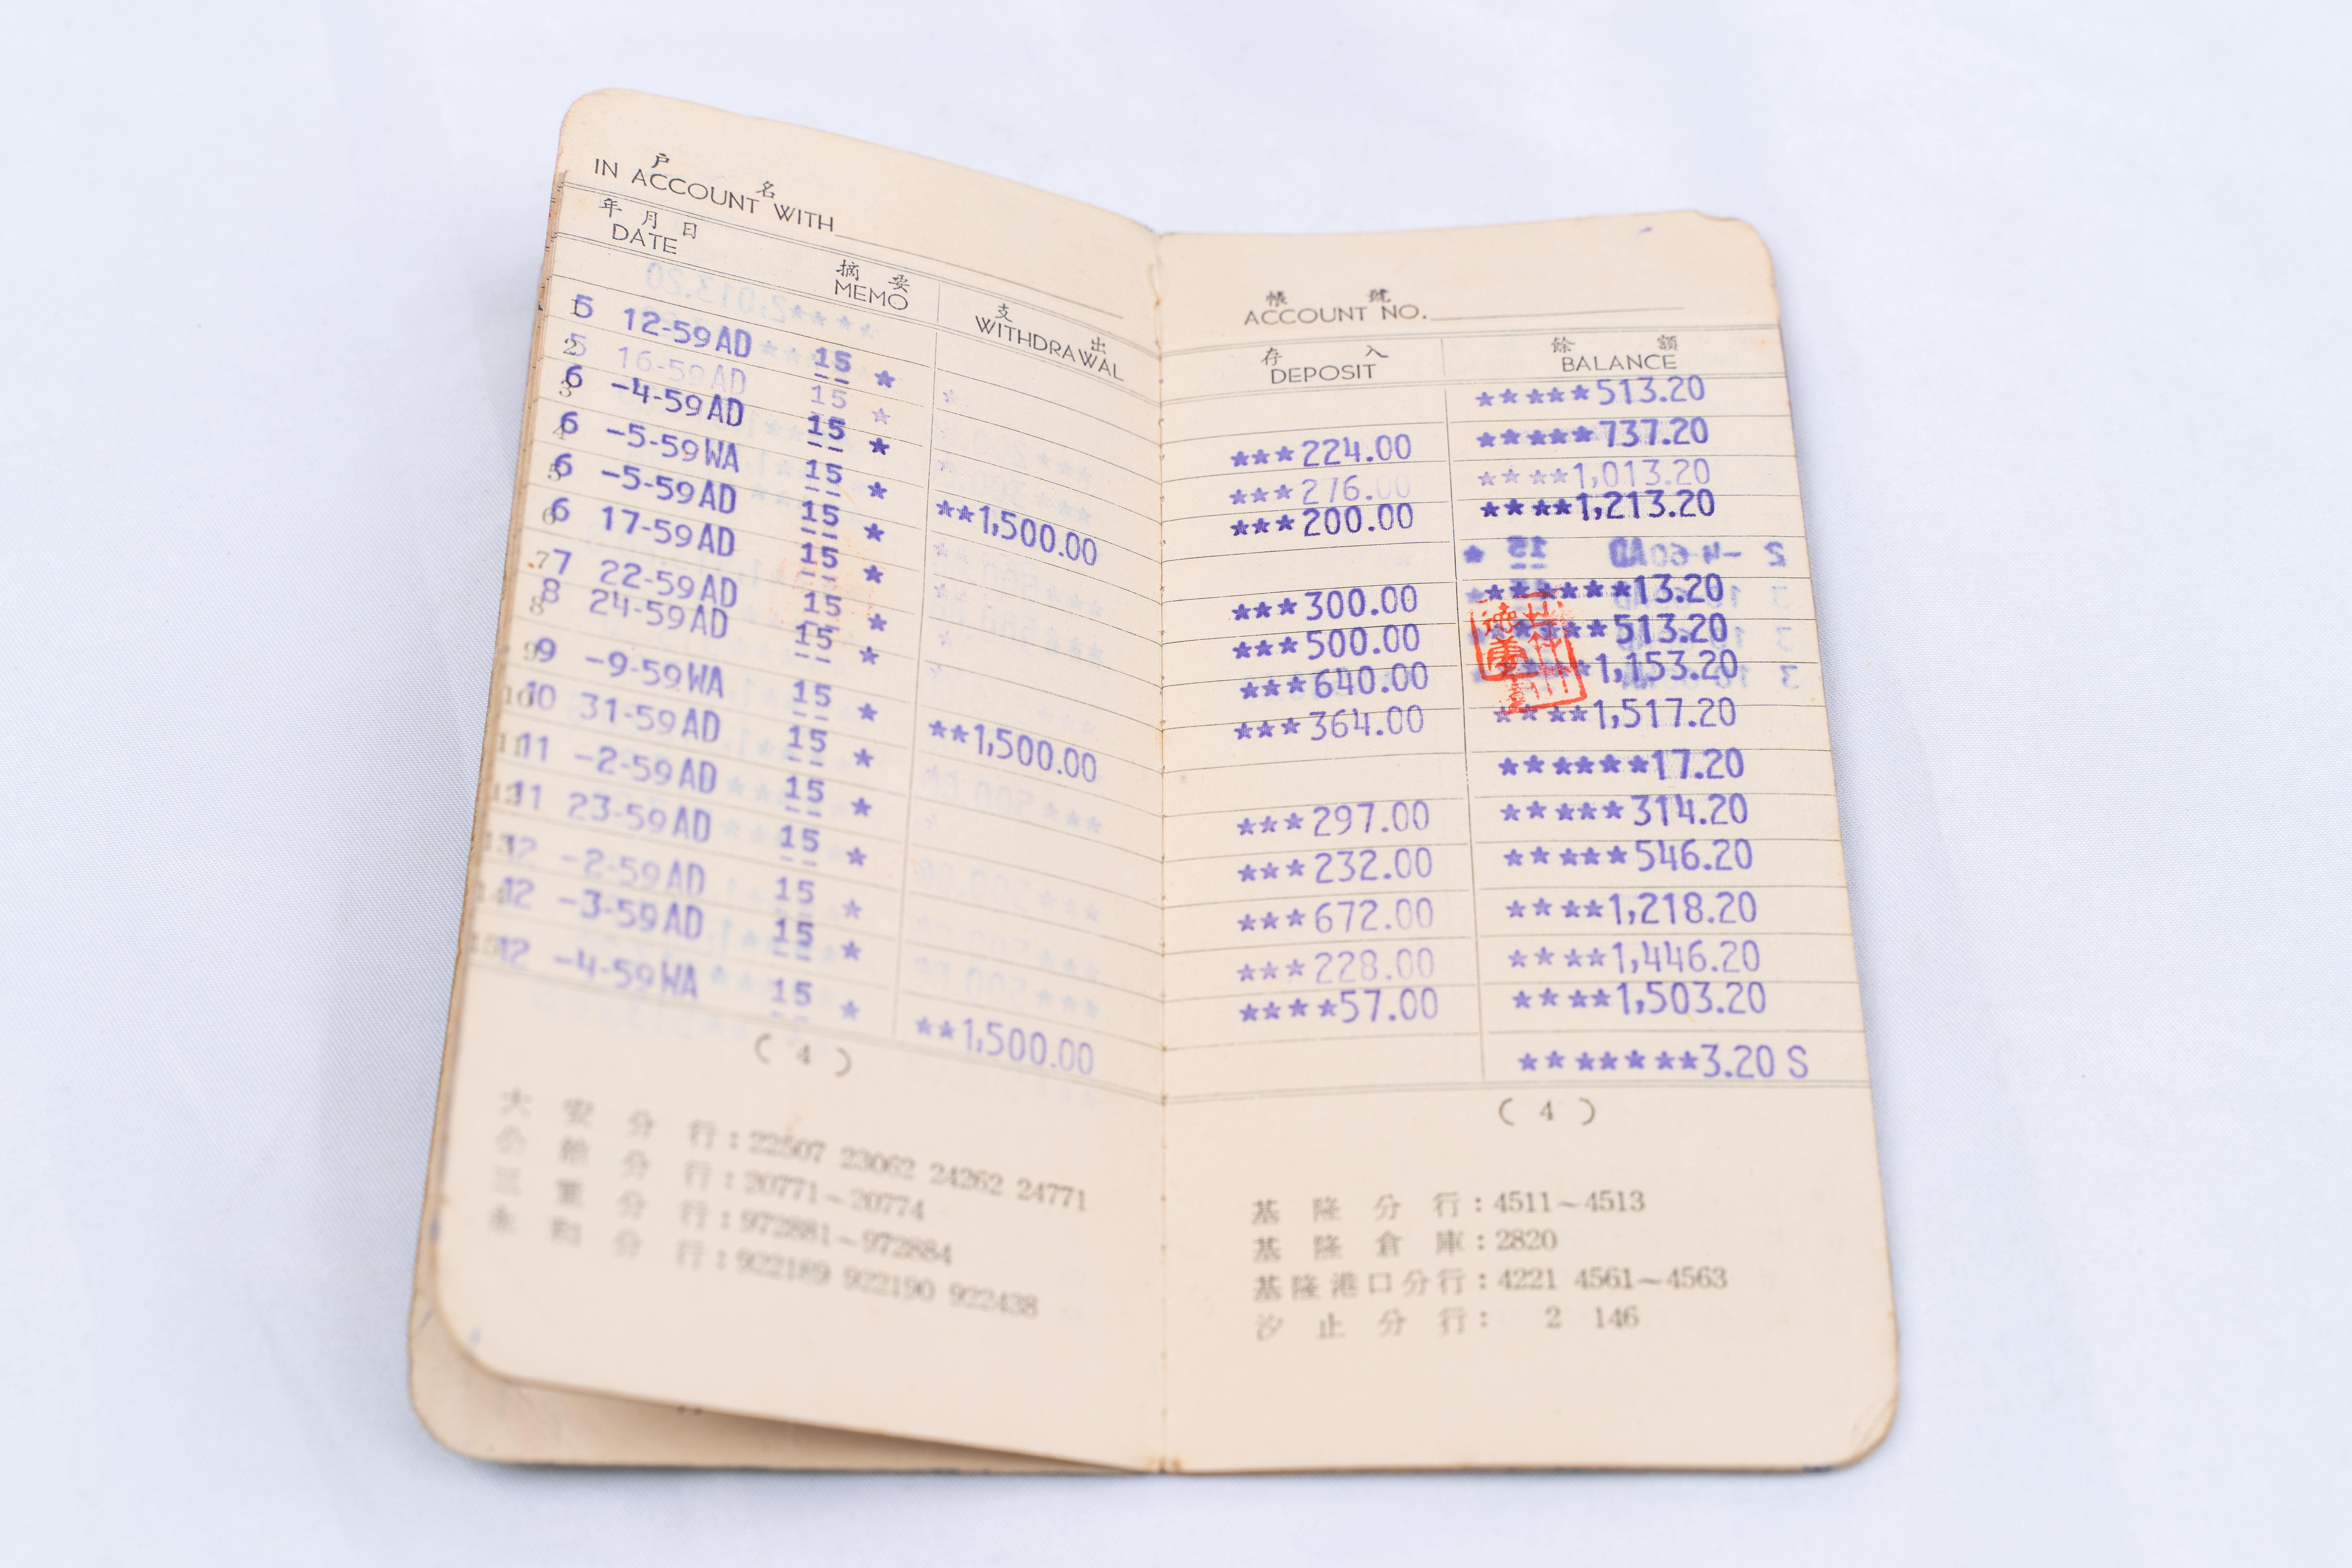 戶 名
IN ACCOUNT WITH
年 月 日 摘 要 支 出
DATE MEMO WITHDRAWAL
1 5 12-59AD 15 *
2 5 16-59AD 15 *
3 6 -4-59AD 15 *
4 6 -5-59WA 15 * **1,500.00
5 6 -5-59AD 15 *
6 6 17-59AD 15 *
7 7 22-59AD 15 *
8 8 24-59AD 15 *
9 9 -9-59WA 15 * **1,500.00
10 10 31-59AD 15 *
11 11 -2-59AD 15 *
12 11 23-59AD 15 *
13 12 -2-59AD 15 *
14 12 -3-59AD 15 *
15 12 -4-59WA 15 * **1,500.00
( 4 )
大安分行:22507 23062 24262 24771
公館分行:20771~20774
三重分行:972881~972884
永和分行:922189 922190 922438
帳 號
ACCOUNT NO.
存 入 餘 額
DEPOSIT BALANCE
*****513.20
***224.00 *****737.20
***276.00 ****1,013.20
***200.00 ****1,213.20
2 -4-60AD 15 *
******13.20
***300.00
***500.00 *****513.20
***640.00 ****1,153.20
***364.00 ****1,517.20
******17.20
***297.00 *****314.20
***232.00 *****546.20
***672.00 ****1,218.20
***228.00 ****1,446.20
****57.00 ****1,503.20
*******3.20 S
( 4 )
基隆分行:4511~4513
基隆倉庫:2820
基隆港口分行:4221 4561~4563
汐止分行: 2 146